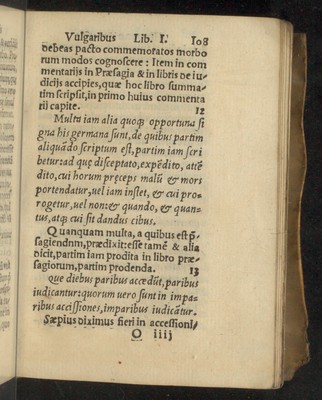 Vulgaribus Lib. I. 108
debeas pacto commemoratos morbo
rum modos cognoscere : Item in com
mentarijs in Præsagia & in libris de iu-
dicijs accipies, quæ hoc libro summa-
tim scripsit, in primo huius commenta
rij capite. 12
Multa iam alia quoq; opportuna si
gna his germana sunt, de quibus partim
aliquãdo scriptum est, partim iam scri
betur: ad quę disceptato, expẽdito, attẽ
dito, cui horum pręceps malũ & mors
portendatur, uel iam instet, & cui pro-
rogetur, uel non: & quando, & quan-
tus, atq; cui sit dandus cibus.
Quanquam multa, a quibus est p̃-
sagiendnm, prædixit: esse tamẽ & alia
dicit, partim iam prodita in libro præ-
sagiorum, partim prodenda. 13
Que diebus paribus accedũt, paribus
iudicantur: quorum uero sunt in impa-
ribus accissiones, imparibus iudicãtur.
Sæpius diximus fieri in accessioni/
O iiij